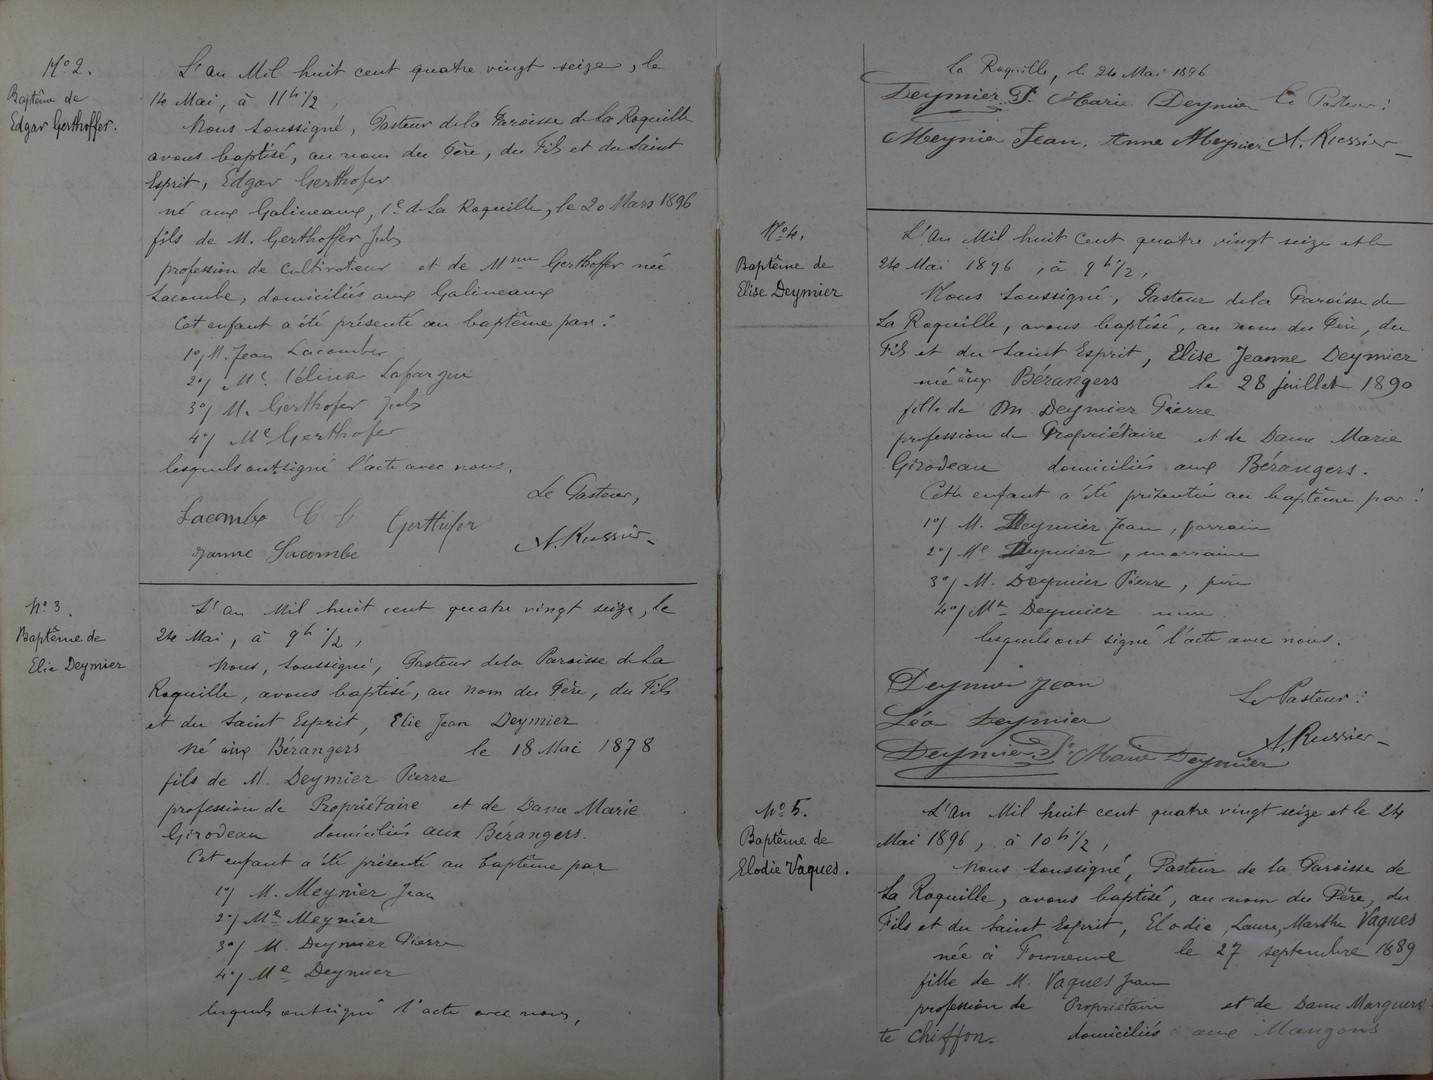 Nº 2.
Baptême de
Edgar Gerthoffer.
L'an Mil huit cent quatre vingt seize, le
14 Mai, à 11h 1/2,
Nous soussigné, Pasteur de la Paroisse de La Roquille
avons baptisé, au nom du Père, du Fils et du Saint
Esprit, Edgar Gerthofer
né aux Galineaux, Cne de La Roquille, le 20 Mars 1896
fils de M. Gerthoffer Jules
profession de Cultivateur et de Mme Gerthoffer née
Lacombe, domiciliés aux Galineaux
Cet enfant a été présenté au baptême par :
1º/ M. Jean Lacombe
2º/ Me Célina Lafargue
3º/ M. Gerthofer Jules
4º/ Me Gerthofer
lesquels ont signé l'acte avec nous.
Le Pasteur,
Lacombe Gerthofer
Jeanne Lacombe
A. Russier
Nº 3.
Baptême de
Elie Deymier
L'an Mil huit cent quatre vingt seize, le
24 Mai, à 9h 1/2,
Nous, soussigné, Pasteur de la Paroisse de La
Roquille, avons baptisé, au nom du Père, du Fils
et du Saint Esprit, Elie Jean Deymier
né aux Bérangers le 18 Mai 1878
fils de M. Deymier Pierre
profession de Propriétaire et de Dame Marie
Girodeau domiciliés aux Bérangers.
Cet enfant a été présenté au baptême par
1º/ M. Meynier Jean
2º/ Me Meynier
3º/ M. Deymier Pierre
4º/ Me Deymier
lesquels ont signé l'acte avec nous,
La Roquille, le 24 Mai 1896
Deymier P. Marie Deymier Le Pasteur :
Meynier Jean. Anne Meynier A. Russier
Nº 4.
Baptême de
Elise Deymier
L'An Mil huit Cent quatre vingt seize et le
24 Mai 1896, à 9h 1/2,
Nous soussigné, Pasteur de la Paroisse de
La Roquille, avons baptisé, au nom du Père, du
Fils et du Saint Esprit, Elise Jeanne Deymier
née aux Bérangers le 28 juillet 1890
fille de M. Deymier Pierre
profession de Propriétaire et de Dame Marie
Girodeau domiciliés aux Bérangers.
Cette enfant a été présentée au baptême par :
1º/ M. Deymier Jean, parrain
2º/ Me Deymier, marraine
3º/ M. Deymier Pierre, père
4º/ Me Deymier mère
lesquels ont signé l'acte avec nous.
Deymier Jean
Le Pasteur :
Léa Deymier
Deymier P. Marie Deymier
A. Russier
Nº 5.
Baptême de
Elodie Vaques.
L'An Mil huit cent quatre vingt seize et le 24
Mai 1896, à 10h 1/2,
Nous soussigné, Pasteur de la Paroisse de
La Roquille, avons baptisé, au nom du Père, du
Fils et du Saint Esprit, Elodie, Laure, Marthe Vaques
née à le 27 septembre 1889
fille de M. Vaques Jean
profession de Propriétaire et de Dame Margueri
te Chiffon. domiciliés aux Mangons